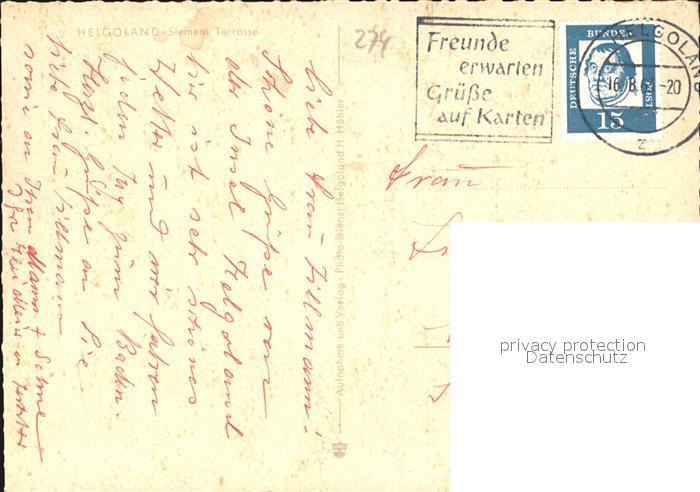 HELGOLAND - Siemens Terrasse
274
Freunde
erwarten
Grüße
auf Karten
DEUTSCHE BUNDESPOST
15
HELGOLAND
16.8.61-20
z
Liebe Frau Tillmann!
Schöne Grüße von
der Insel Helgoland
hier ist sehr schönes
Wetter und wir fahren
jeden Tag zum Baden.
Herzl. Grüße an Sie
liebe Frau Tillmann
sowie an Ihren Mann + Söhne
Ihre
Aufnahme und Verlag: Photo-Dienst Helgoland H. Höhler
Frau
privacy protection
Datenschutz